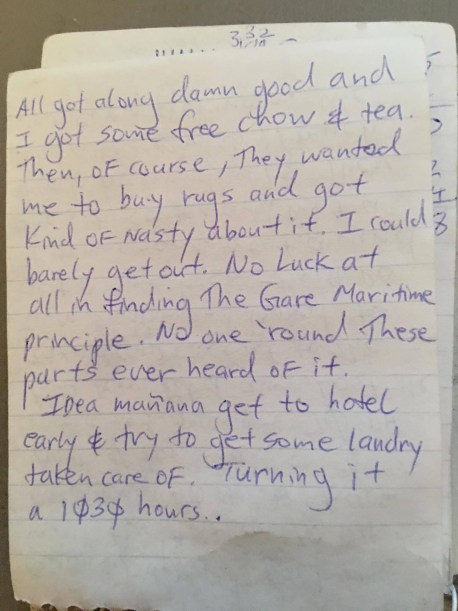 All got along damn good and
I got some free chow & tea.
Then, of course, They wanted
me to buy rugs and got
kind of nasty about it. I could
barely get out. No luck at
all in finding The Gare Maritime
principle. No one 'round These
parts ever heard of it.
Idea mañana get to hotel
early & try to get some landry
taken care of. Turning it
a 1030 hours..